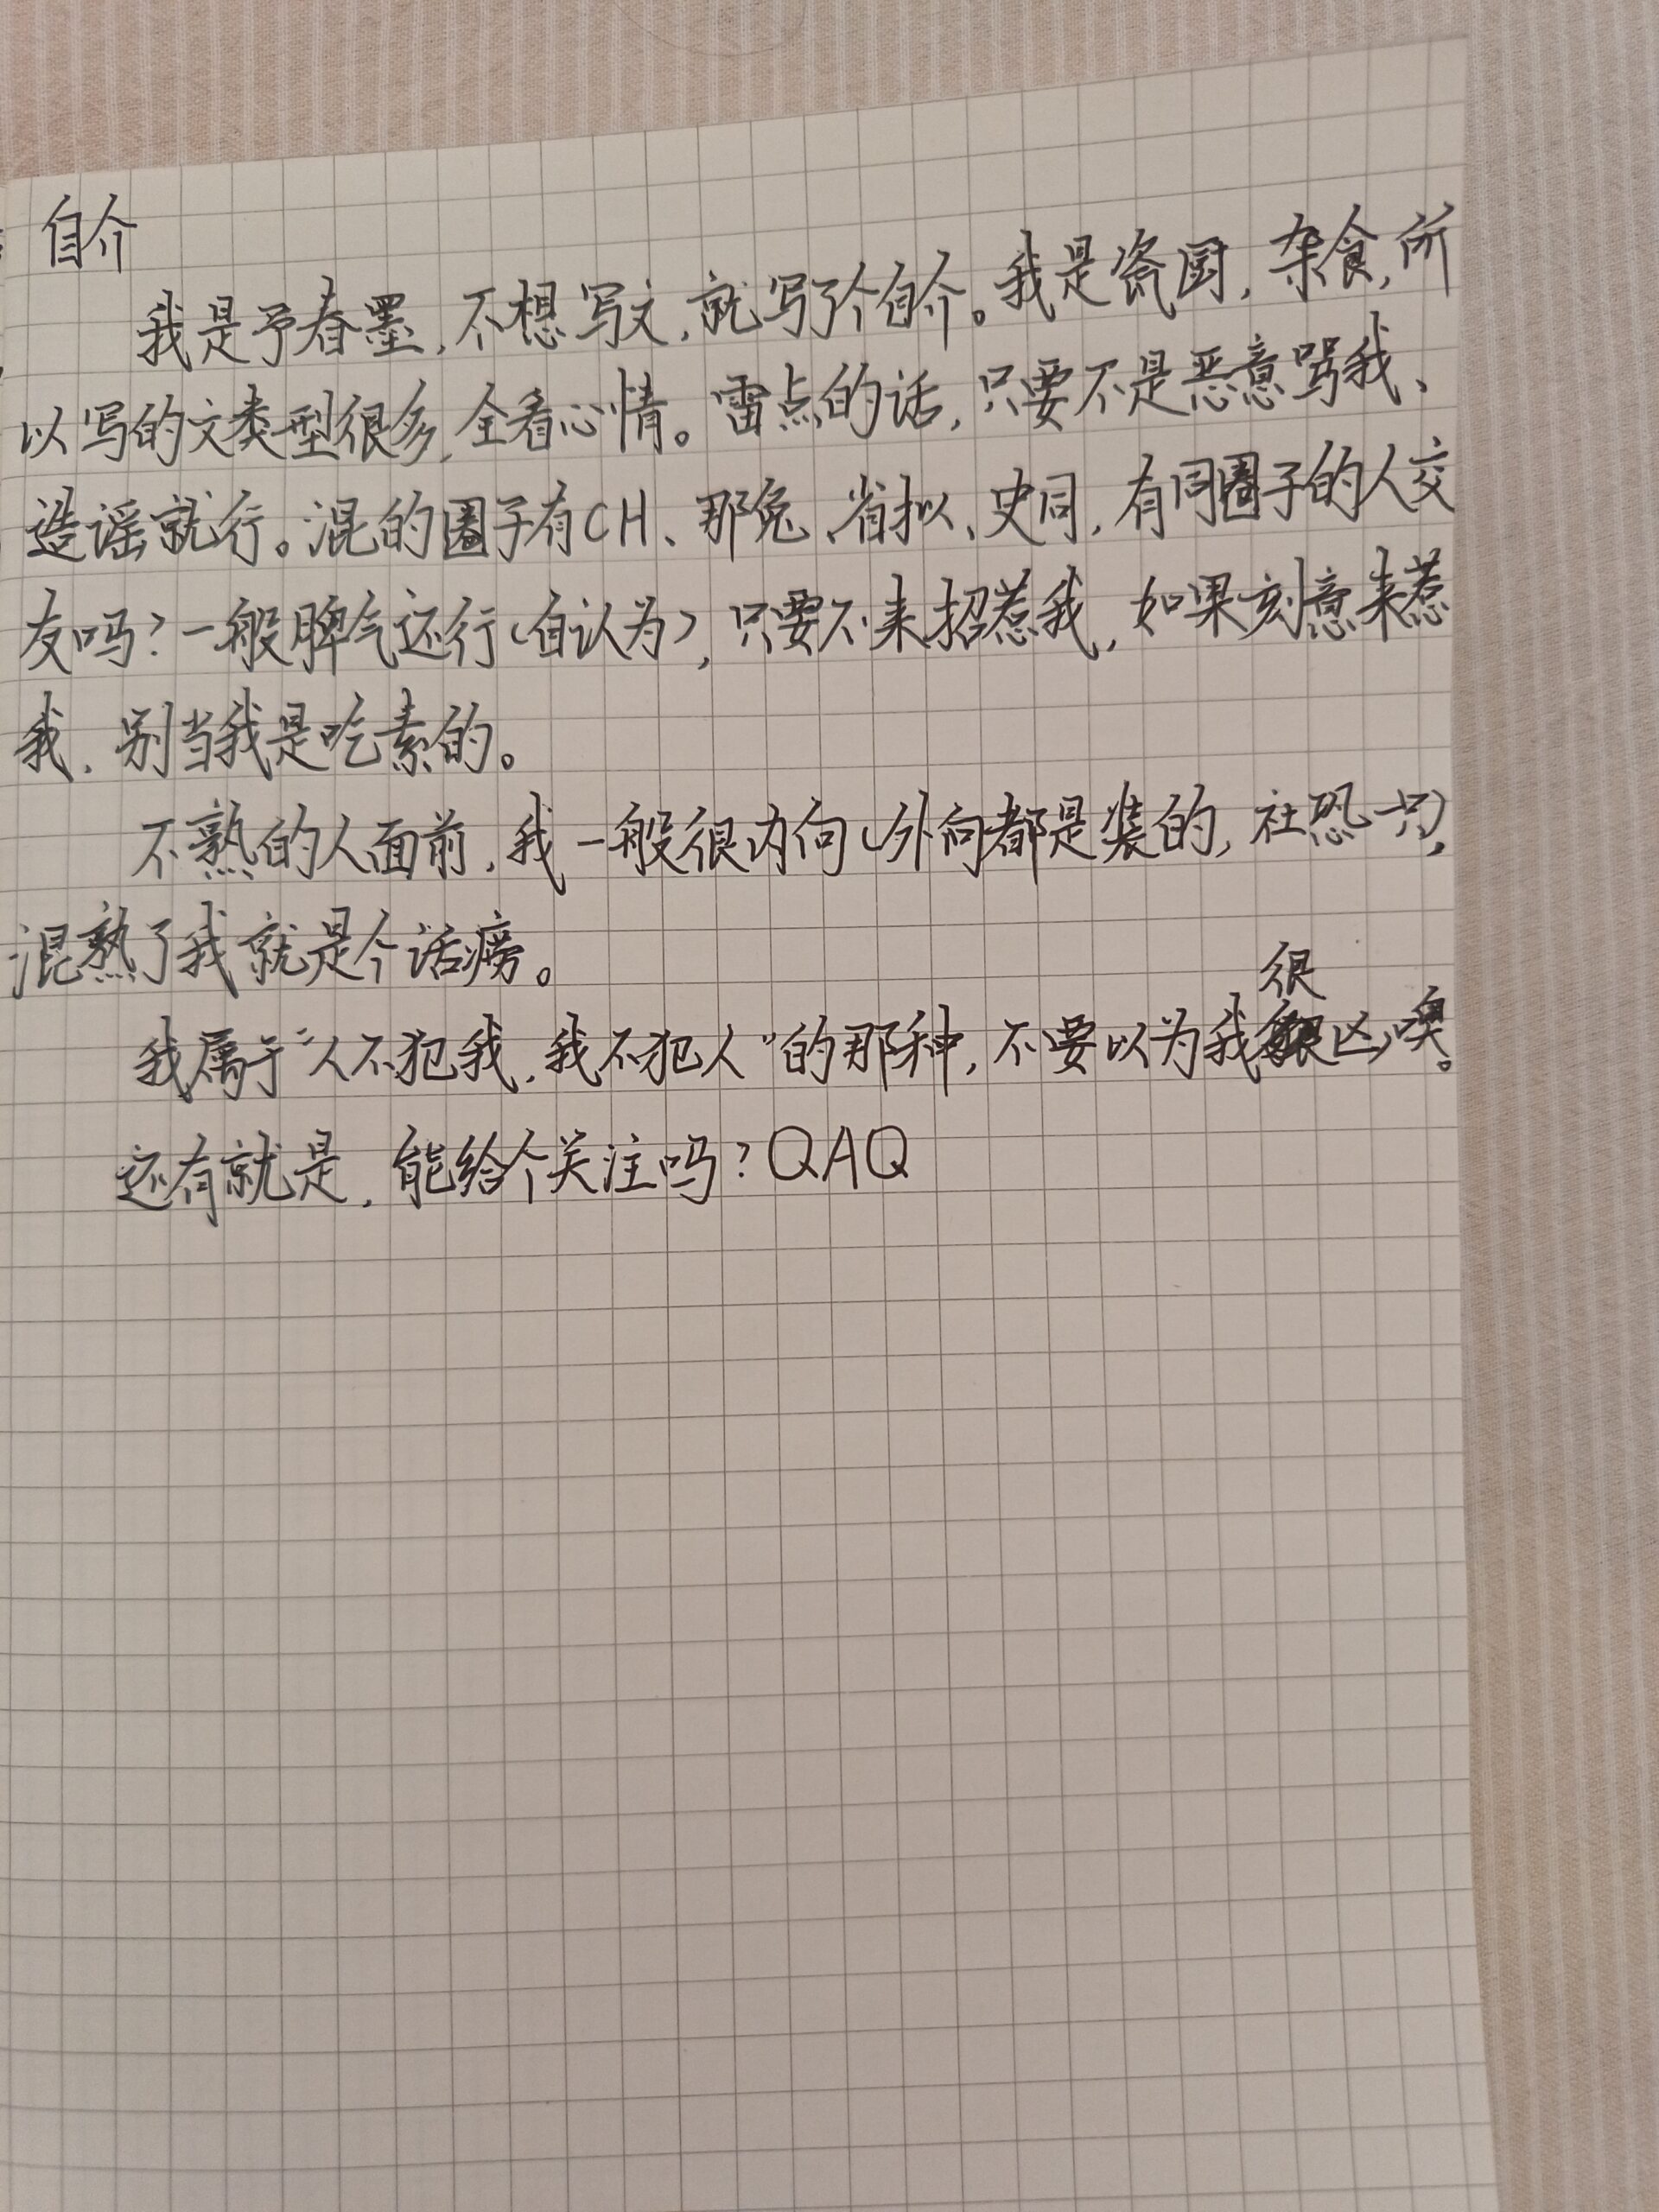 自介
我是予春墨,不想写文,就写了个自介。我是瓷厨,杂食,所
以写的文类型很多,全看心情。雷点的话,只要不是恶意骂我、
造谣就行。混的圈子有CH、那兔、省拟、史同,有同圈子的人交
友吗?一般脾气还行(自认为),只要不来招惹我,如果刻意来惹
我,别当我是吃素的。
不熟的人面前,我一般很内向(外向都是装的,社恐一只),
混熟了我就是个话痨。
我属于“人不犯我,我不犯人”的那种,不要以为我很凶噢。
还有就是,能给个关注吗?QAQ